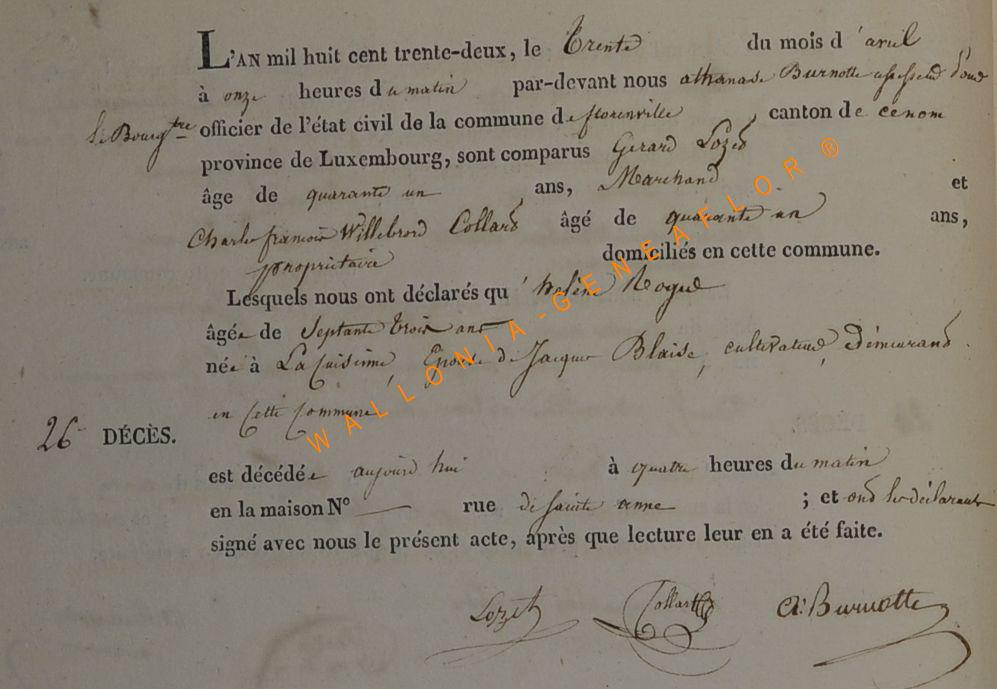 L'AN mil huit cent trente-deux, le trente du mois d'avril
à onze heures du matin par-devant nous athanase Burnotte assesseur
le Bourgtre officier de l'état civil de la commune de florenville canton de
province de Luxembourg, sont comparus Gerard Lozet
âge de quarante un ans, Marchand et
Charles francois Willebrord Collard âgé de quarante un ans,
propriétaire domiciliés en cette commune.
Lesquels nous ont déclarés qu'helène
âgée de septante trois ans
née à La Cuisinne, Epouse de Jacques Blaise, cultivateur, Demeurand
en Cette Commune
26 DÉCÈS.
est décédée aujourd'hui à quatre heures du matin
en la maison No rue de sainte anne ; et ond les déclarants
signé avec nous le présent acte, après que lecture leur en a été faite.
Lozet Collard A: Burnotte
WALLONIA-GENEAFLOR ®